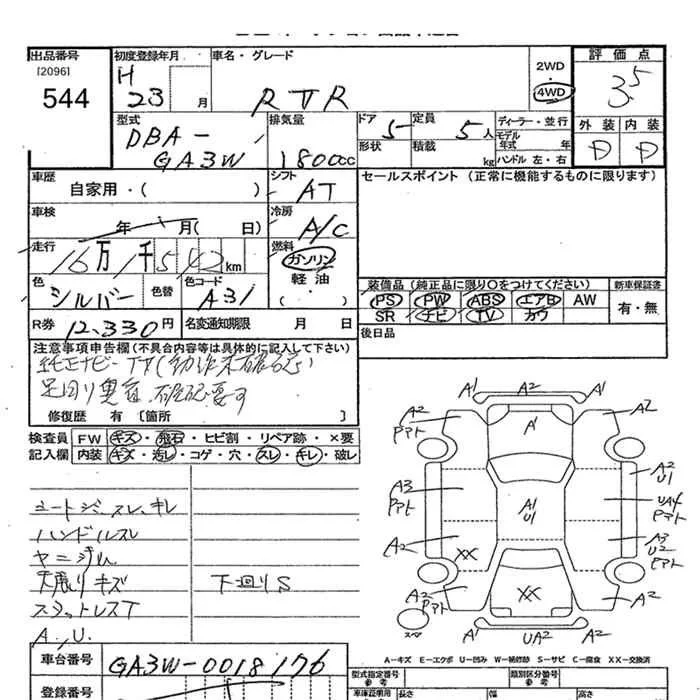 出品番号 初度登録年月 車名・グレード 2WD 評価点
[2096] H 4WD 3.5
544 23 月 RVR 外装 内装
型式 排気量 ドア 定員 ディーラー・並行 D D
DBA- 5 5人 モデル
GA3W 1800cc 形状 積載 年式 年
kg ハンドル 左・右
車歴 シフト セールスポイント (正常に機能するものに限ります)
自家用・( ) AT
車検 冷房
年 月( 日) A/C
走行 燃料
16万1千542km ガソリン
色 色替 色コード 軽油 装備品(純正品に限り○をつけてください) 新車保証書
シルバー A31 ・( ) PS PW ABS エアB AW 有・無
SR ナビ TV カワ
R券 12,330円 名変通知期限 月 日 後日品
注意事項申告欄(不具合内容等は具体的に記入して下さい)
純正ナビーTV(動作未確認)
足回り異音 確認要す
修復歴 有 [箇所 ]
検査員 FW キズ・飛石・ヒビ割・リペア跡・×要
記入欄 内装 キズ・汚レ・コゲ・穴・スレ・キレ・破レ
シートジミ、スレ、キレ
ハンドルスレ
ヤニジミ
天張りキズ 下回りS
A、U
A1 A2 A1
A2 A1 A2
Pアト
A3 A1 A2
Pアト U1 U1
UA4
Pアト
A2 XX A3
U2
Pアト
A2 XX A2
Pアト
スペア A1 UA2 A2
A-キズ E-エクボ U-凹み W-補修跡 S-サビ C-腐食 XX-交換済
車台番号 GA3W-0018176 型式指定番号 類別区分番号
参考 参考
登録番号 車庫証明用 長さ 幅 高さ